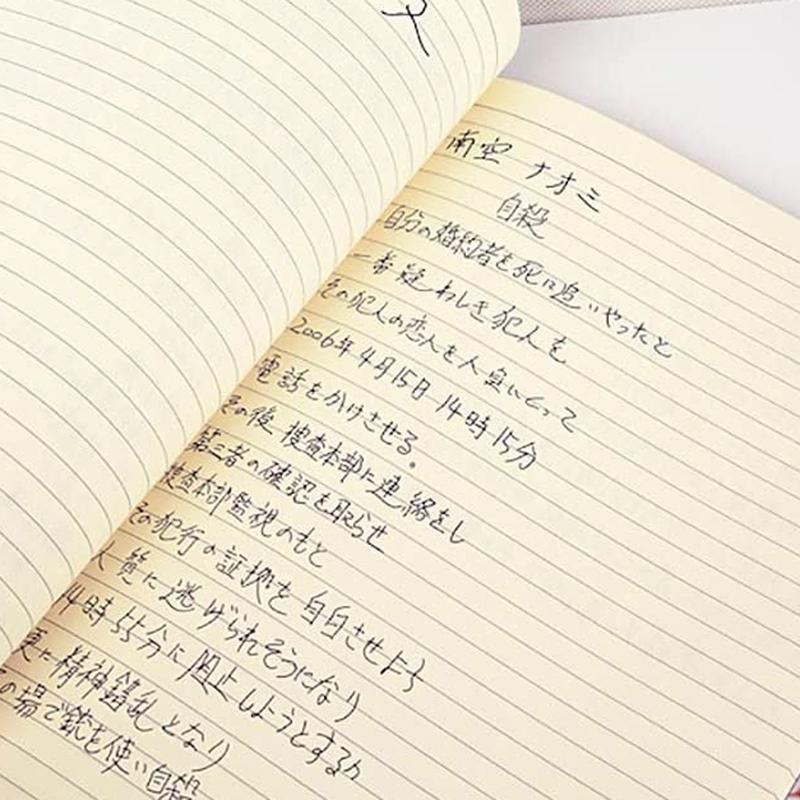 南空 ナオミ
自殺
自分の婚約者を死に追いやったと
一番疑わしき犯人を
その犯人の恋人を人質にとって
2006年4月15日 14時15分
電話をかけさせる。
その後 捜査本部に連絡をし
第三者の確認を取らせ
捜査本部監視のもと
その犯行の証拠を自白させようと
人質に逃げられそうになり
14時55分に阻止しようとするが
更に精神錯乱となり
の場で銃を使い自殺